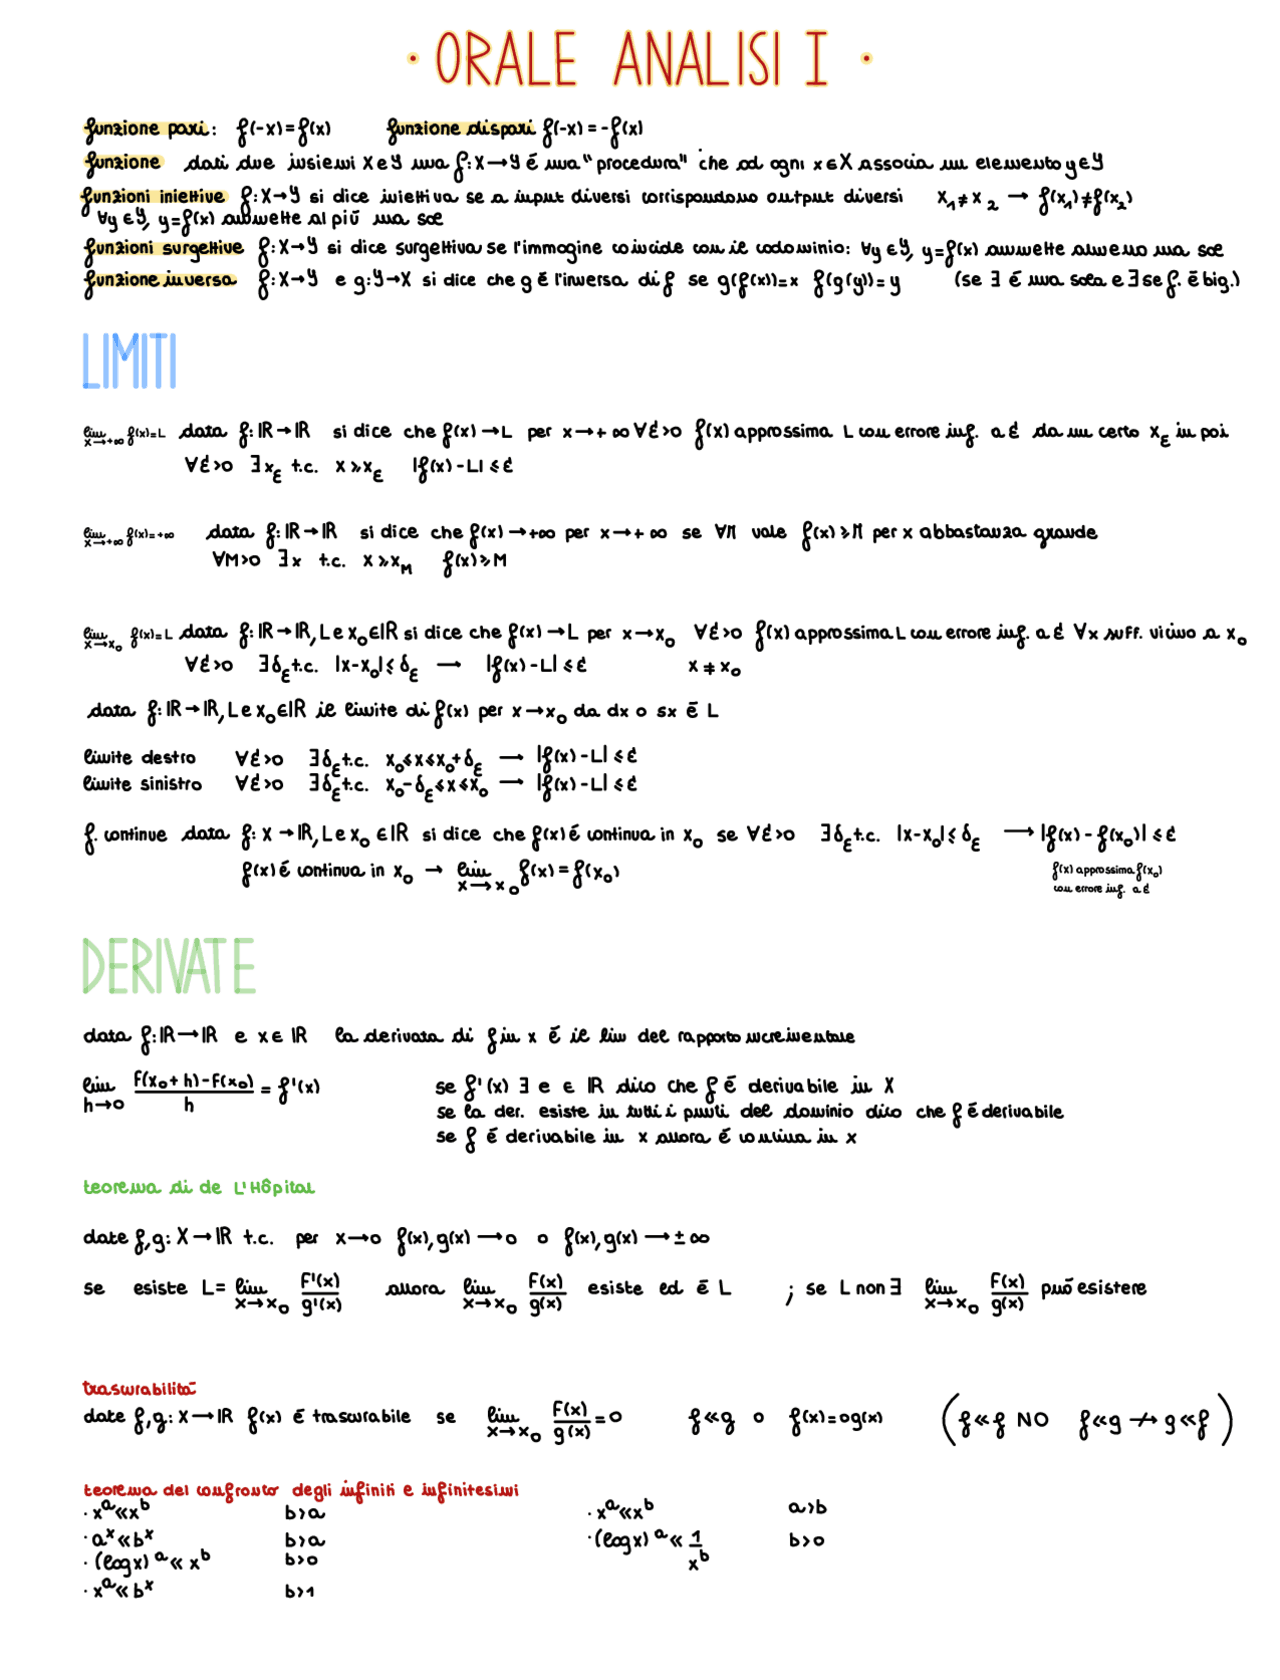 · ORALE ANALISI I ·
funzione pari: f(-x)=f(x) funzione dispari f(-x)=-f(x)
funzione dati due insiemi X e Y una f: X→Y é una "procedura" che ad ogni x∈X associa un elemento y∈Y
funzioni iniettive f: X→Y si dice iniettiva se a input diversi corrispondono output diversi x₁≠x₂ → f(x₁)≠f(x₂)
∀y∈Y, y=f(x) ammette al piú una sol
funzioni surgettive f: X→Y si dice surgettiva se l'immagine coincide con il codominio: ∀y∈Y, y=f(x) ammette almeno una sol
funzione inversa f: X→Y e g: Y→X si dice che g é l'inversa di f se g(f(x))=x f(g(y))=y (se ∃ é una sola e ∃ se f. é big.)
LIMITI
lim x→+∞ f(x)=L data f: IR→IR si dice che f(x)→L per x→+∞ ∀ε>0 f(x) approssima L con errore inf. a ε da un certo x_ε in poi
∀ε>0 ∃x_ε t.c. x≥x_ε |f(x)-L|≤ε
lim x→+∞ f(x)=+∞ data f: IR→IR si dice che f(x)→+∞ per x→+∞ se ∀M vale f(x)≥M per x abbastanza grande
∀M>0 ∃x t.c. x≥x_M f(x)≥M
lim x→x₀ f(x)=L data f: IR→IR, L e x₀∈IR si dice che f(x)→L per x→x₀ ∀ε>0 f(x) approssima L con errore inf. a ε ∀x suff. vicino a x₀
∀ε>0 ∃δ_ε t.c. |x-x₀|≤δ_ε → |f(x)-L|≤ε x≠x₀
data f: IR→IR, L e x₀∈IR il limite di f(x) per x→x₀ da dx o sx é L
limite destro ∀ε>0 ∃δ_ε t.c. x₀≤x≤x₀+δ_ε → |f(x)-L|≤ε
limite sinistro ∀ε>0 ∃δ_ε t.c. x₀-δ_ε≤x≤x₀ → |f(x)-L|≤ε
f. continue data f: X→IR, L e x₀∈IR si dice che f(x) é continua in x₀ se ∀ε>0 ∃δ_ε t.c. |x-x₀|≤δ_ε → |f(x)-f(x₀)|≤ε
f(x) é continua in x₀ → lim x→x₀ f(x)=f(x₀) f(x) approssima f(x₀)
con errore inf. a ε
DERIVATE
data f: IR→IR e x∈IR la derivata di f in x é il lim del rapporto incrementale
lim h→0 F(x₀+h)-F(x₀) / h = f'(x) se f'(x) ∃ e ∈ IR dico che f é derivabile in X
se la der. esiste in tutti i punti del dominio dico che f é derivabile
se f é derivabile in x allora é continua in x
teorema di de L'Hôpital
date f,g: X→IR t.c. per x→0 f(x),g(x)→0 o f(x),g(x)→±∞
se esiste L= lim x→x₀ F'(x)/g'(x) allora lim x→x₀ F(x)/g(x) esiste ed é L ; se L non ∃ lim x→x₀ F(x)/g(x) puó esistere
trascurabilitá
date f,g: X→IR f(x) é trascurabile se lim x→x₀ F(x)/g(x) =0 f≪g o f(x)=og(x) (f≪f NO f≪g ↛ g≪f)
teorema del confronto degli infiniti e infinitesimi
· xᵃ≪xᵇ b>a · xᵃ≪xᵇ a>b
· aˣ≪bˣ b>a · (logx)ᵃ≪ 1/xᵇ b>0
· (logx)ᵃ≪xᵇ b>0
· xᵃ≪bˣ b>1